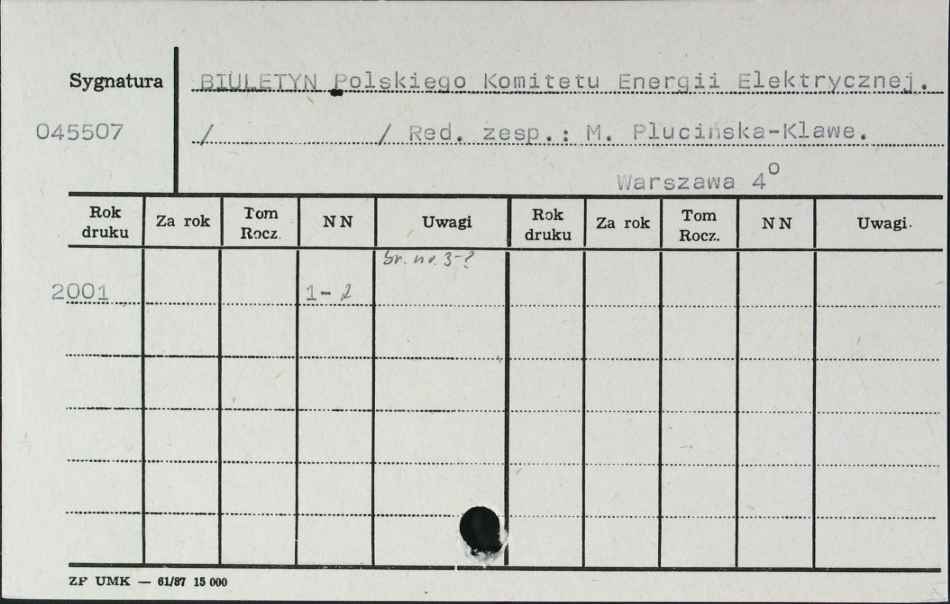 Sygnatura BIULETYN Polskiego Komitetu Energii Elektrycznej.
045507 / / Red. zesp.: M. Plucińska-Klawe.
Warszawa 4⁰
Rok druku Za rok Tom Rocz. NN Uwagi Rok druku Za rok Tom Rocz. NN Uwagi.
br. nr. 3-?
2001 1-2
ZP UMK — 61/87 15 000